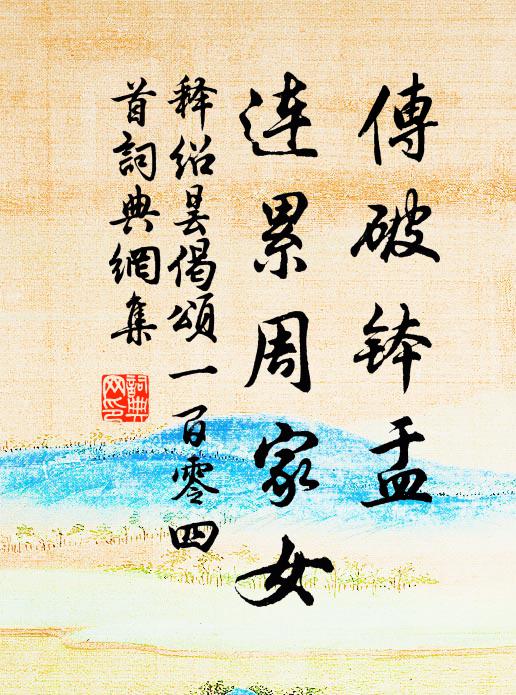 傳破鉢盂
連累周家女
释绍昙偈頌一百零四
首詞典網集
詞典
网印